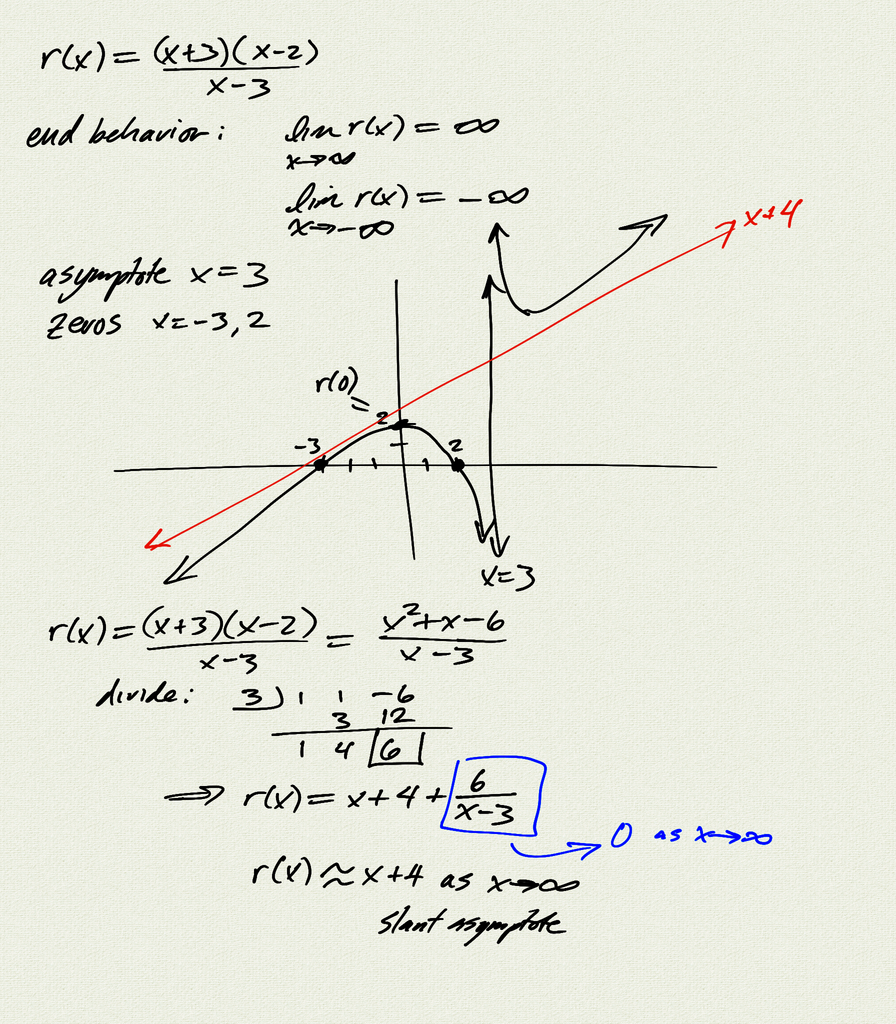 r(x) = (x+3)(x-2)
x-3
end behavior: lim r(x) = ∞
x→∞
lim r(x) = -∞
x→-∞
x+4
asymptote x = 3
zeros x = -3, 2
r(0)
=
2
-3
2
x=3
r(x) = (x+3)(x-2) = x²+x-6
x-3 x-3
divide: 3) 1 1 -6
3 12
1 4 6
⟹ r(x) = x+4+ 6
x-3
0 as x→∞
r(x) ≈ x+4 as x→∞
slant asymptote